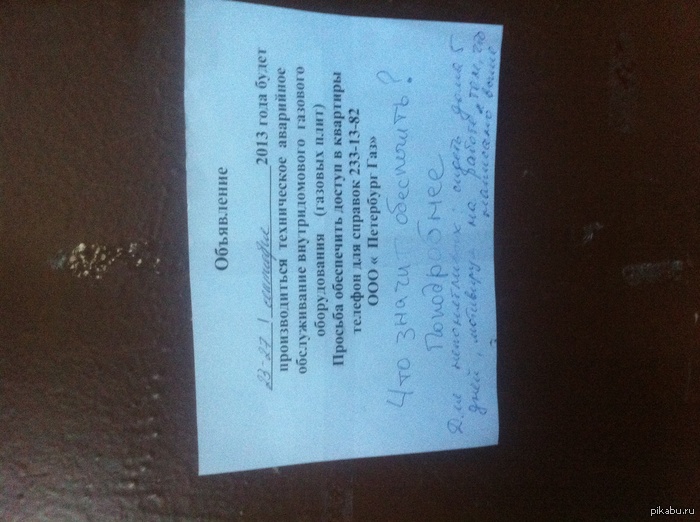 Объявление
23-27 сентября 2013 года будет
производиться техническое аварийное
обслуживание внутридомового газового
оборудования (газовых плит)
Просьба обеспечить доступ в квартиры
телефон для справок 233-13-82
ООО « Петербург Газ»
Что значит обеспечить?
Поподробнее
Для непонятливых: сидеть дома 5
дней, мотивируя на работе тем, что
написано выше
pikabu.ru